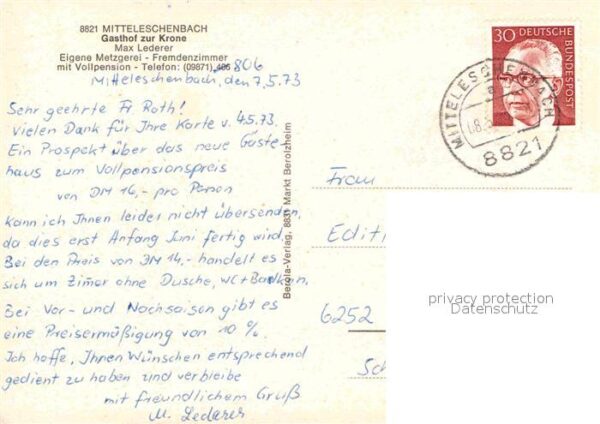 8821 MITTELESCHENBACH
Gasthof zur Krone
Max Lederer
Eigene Metzgerei - Fremdenzimmer
mit Vollpension - Telefon: (09871) 406
806
Mitteleschenbach, den 7.5.73
Sehr geehrte Fr. Roth!
Vielen Dank für Ihre Karte v. 4.5.73.
Ein Prospekt über das neue Gäste-
haus zum Vollpensionspreis
von DM 16,- pro Person
kann ich Ihnen leider nicht übersenden,
da dies erst Anfang Juni fertig wird.
Bei den Preis von DM 14,- handelt es
sich um Zimer ohne Dusche, WC + Balkon.
Bei Vor- und Nachsaison gibt es
eine Preisermäßigung von 10 %.
Ich hoffe, Ihnen Wünschen entsprechend
gedient zu haben und verbleibe
mit freundlichem Gruß
M. Lederer
Berola-Verlag, 8831 Markt Berolzheim
30 DEUTSCHE
BUNDESPOST
MITTELESCHENBACH
8821
Frau
Edit
6252
Sc
privacy protection
Datenschutz